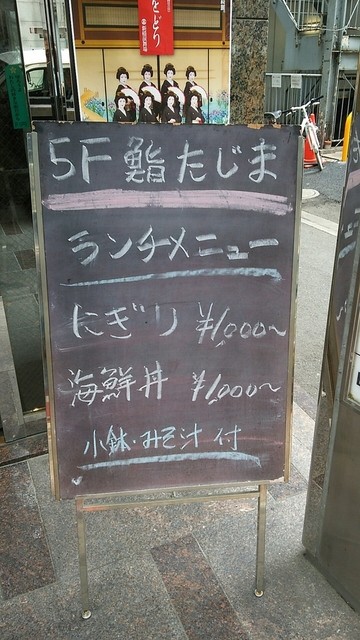 をどり
5F 鮨 たじま
ランチメニュー
にぎり ¥1,000～
海鮮丼 ¥1,000～
小鉢・みそ汁 付